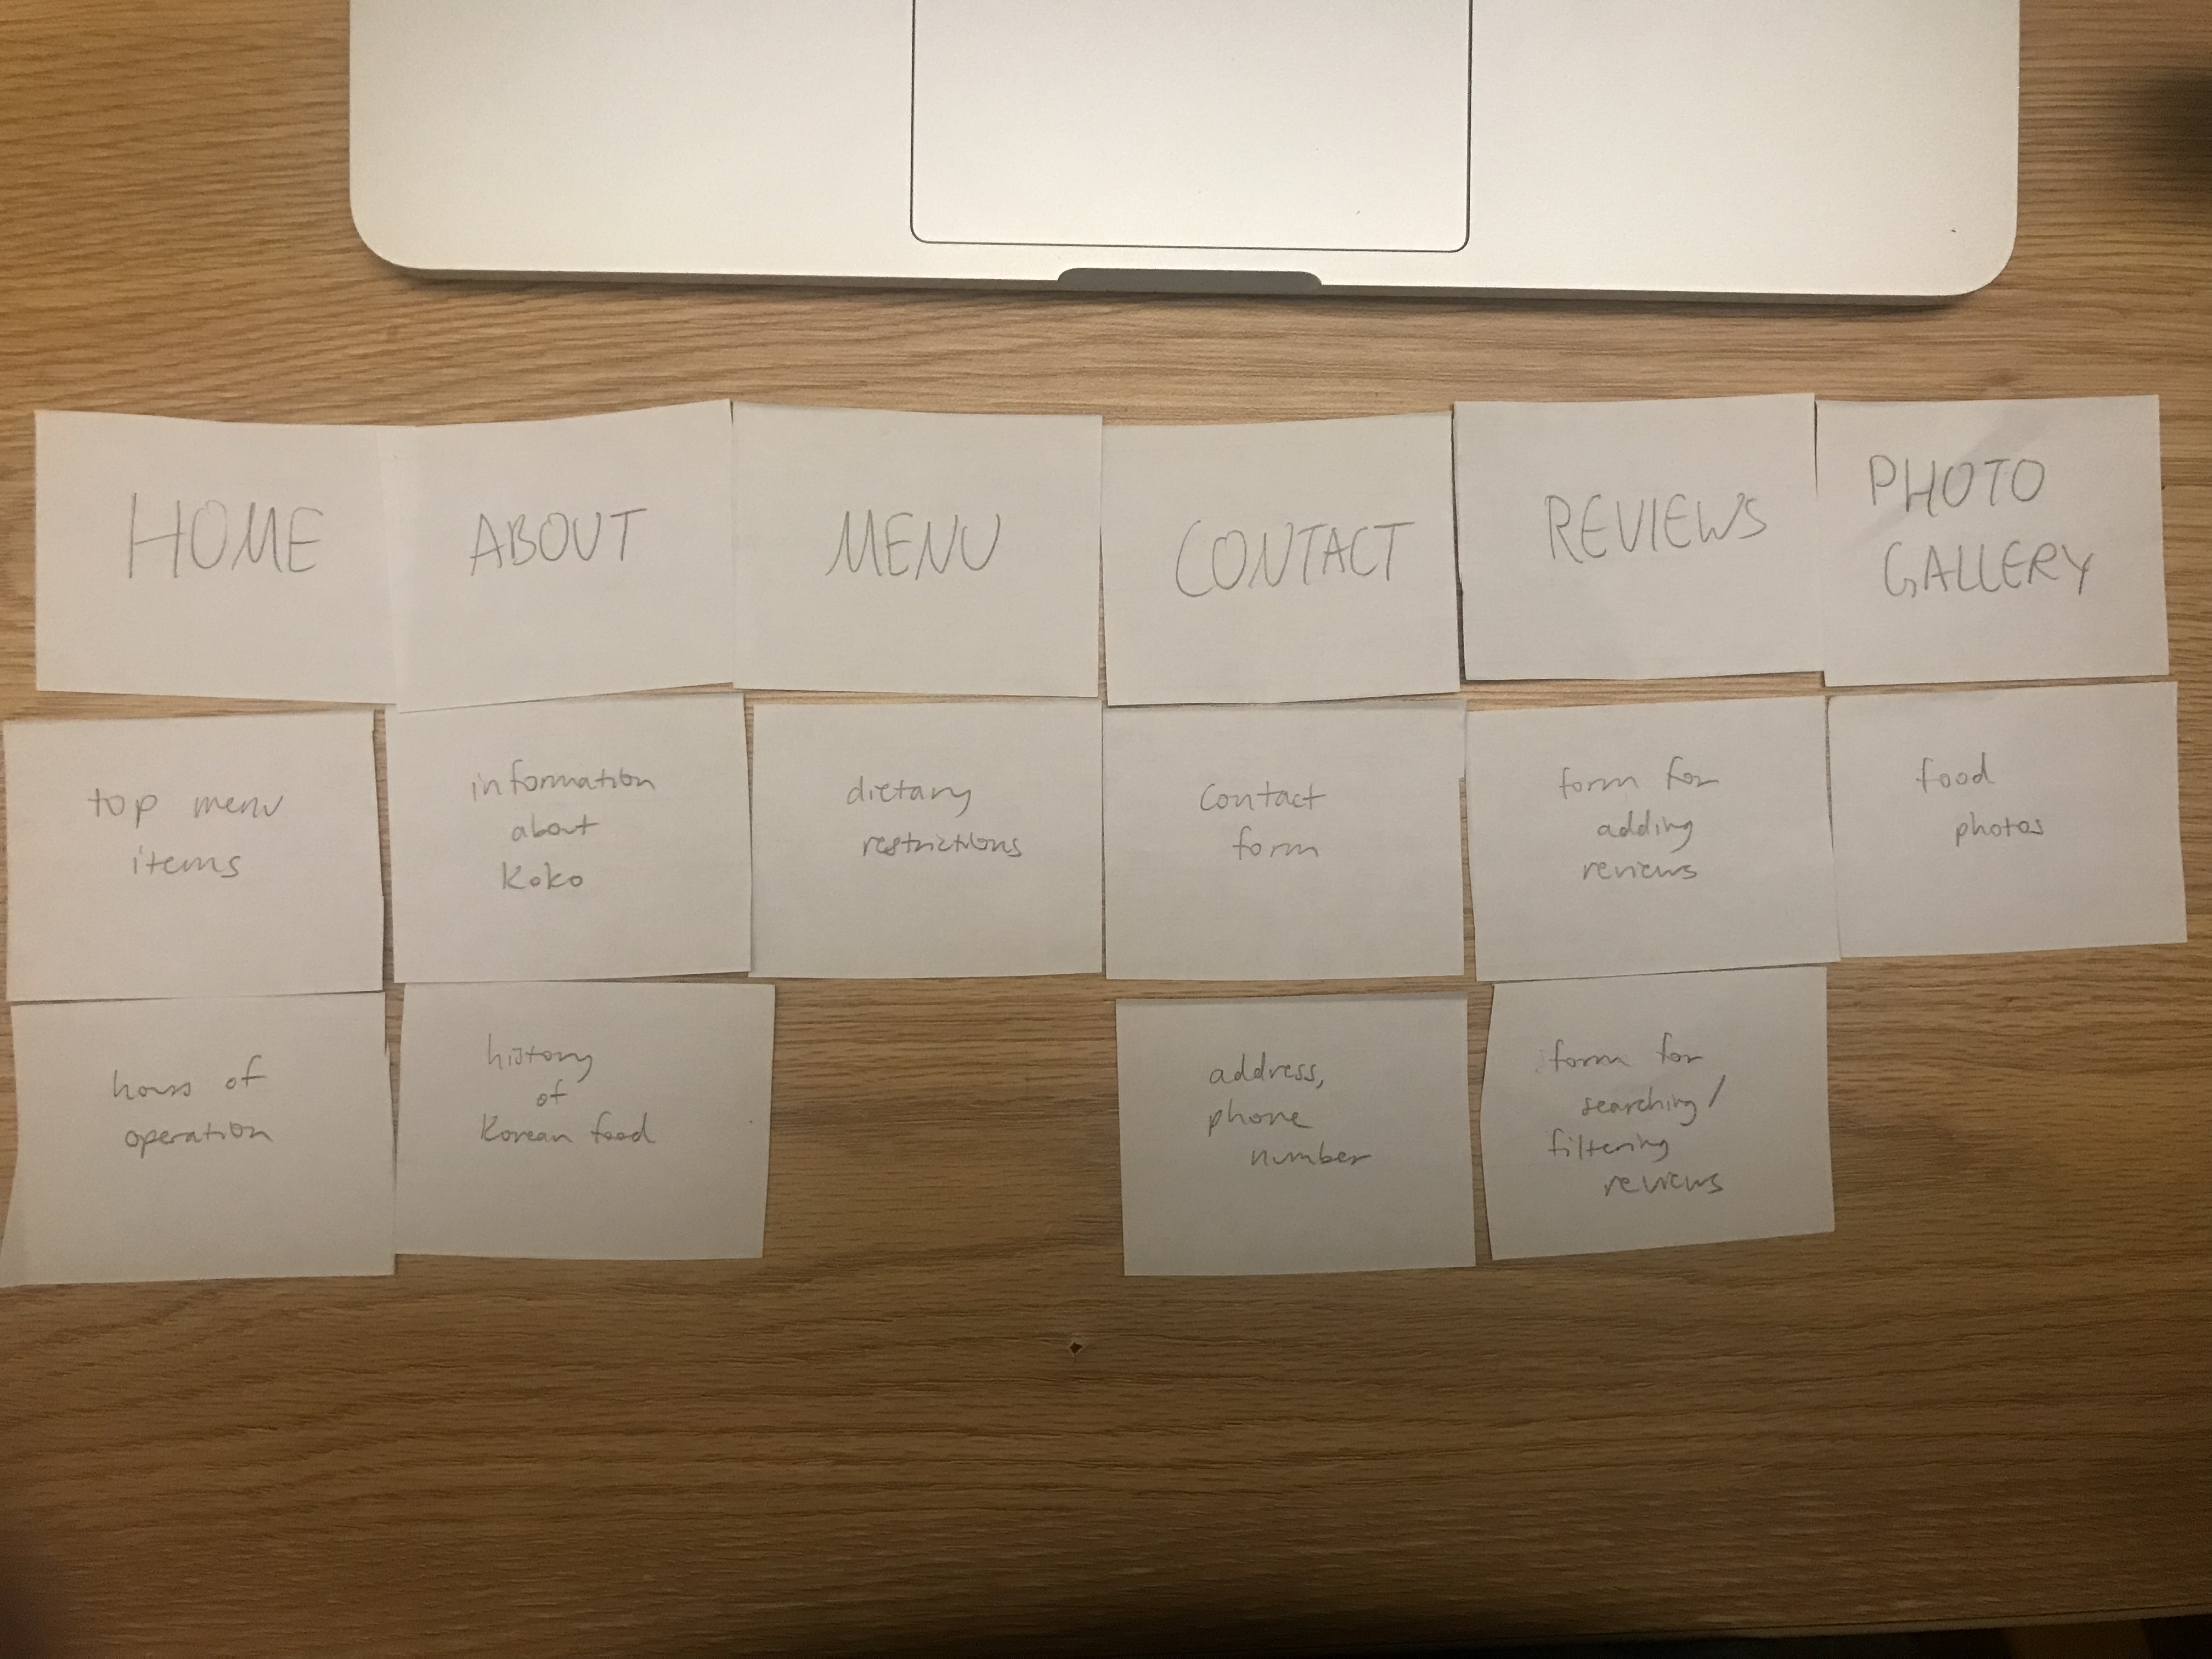 HOME
ABOUT
MENU
CONTACT
REVIEWS
PHOTO
GALLERY
top menu
items
information
about
Koko
dietary
restrictions
Contact
form
form for
adding
reviews
food
photos
hours of
operation
history
of
Korean food
address,
phone
number
form for
searching/
filtering
reviews